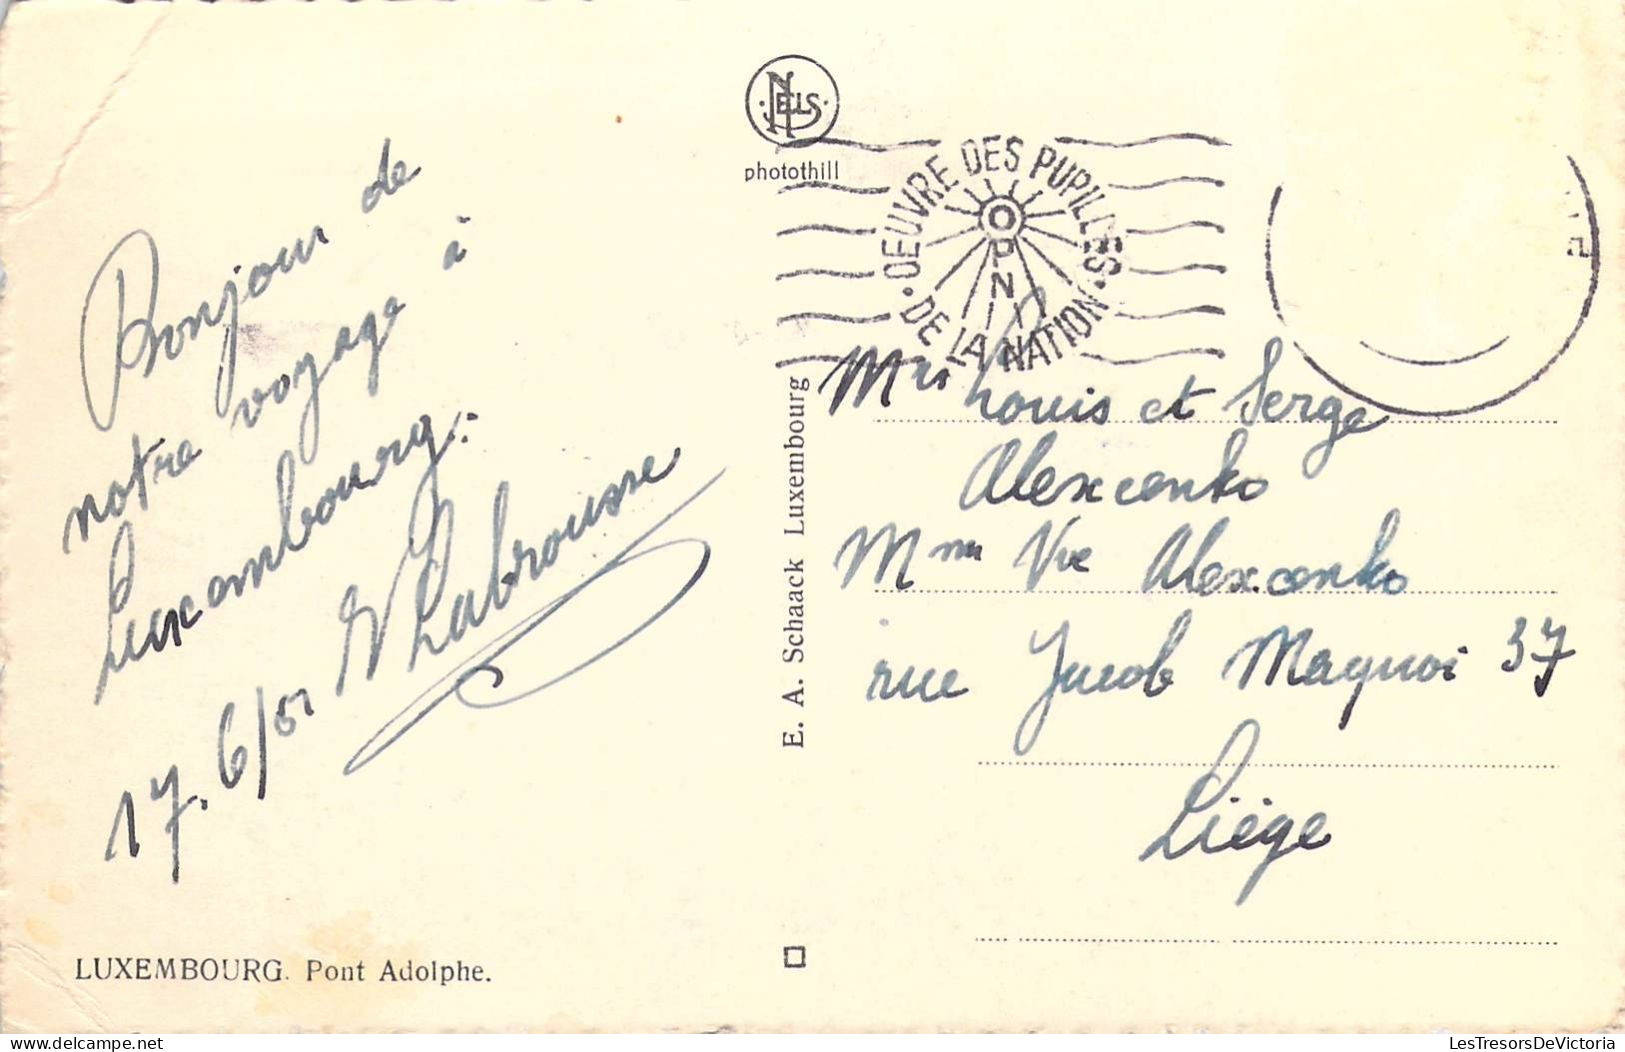 Bonjour de
notre voyage à
Luxembourg.
Labrousse
17.6/51
LUXEMBOURG. Pont Adolphe.
NELS
photothill
E. A. Schaack Luxembourg
OEUVRE DES PUPILLES
DE LA NATION
OPN
Louis et Serge
Alexcenko
Mme Vve Alexcenko
rue Jacob Maquoi 37
Liège
LesTresorsDeVictoria
LesTresorsDeVictoria.com